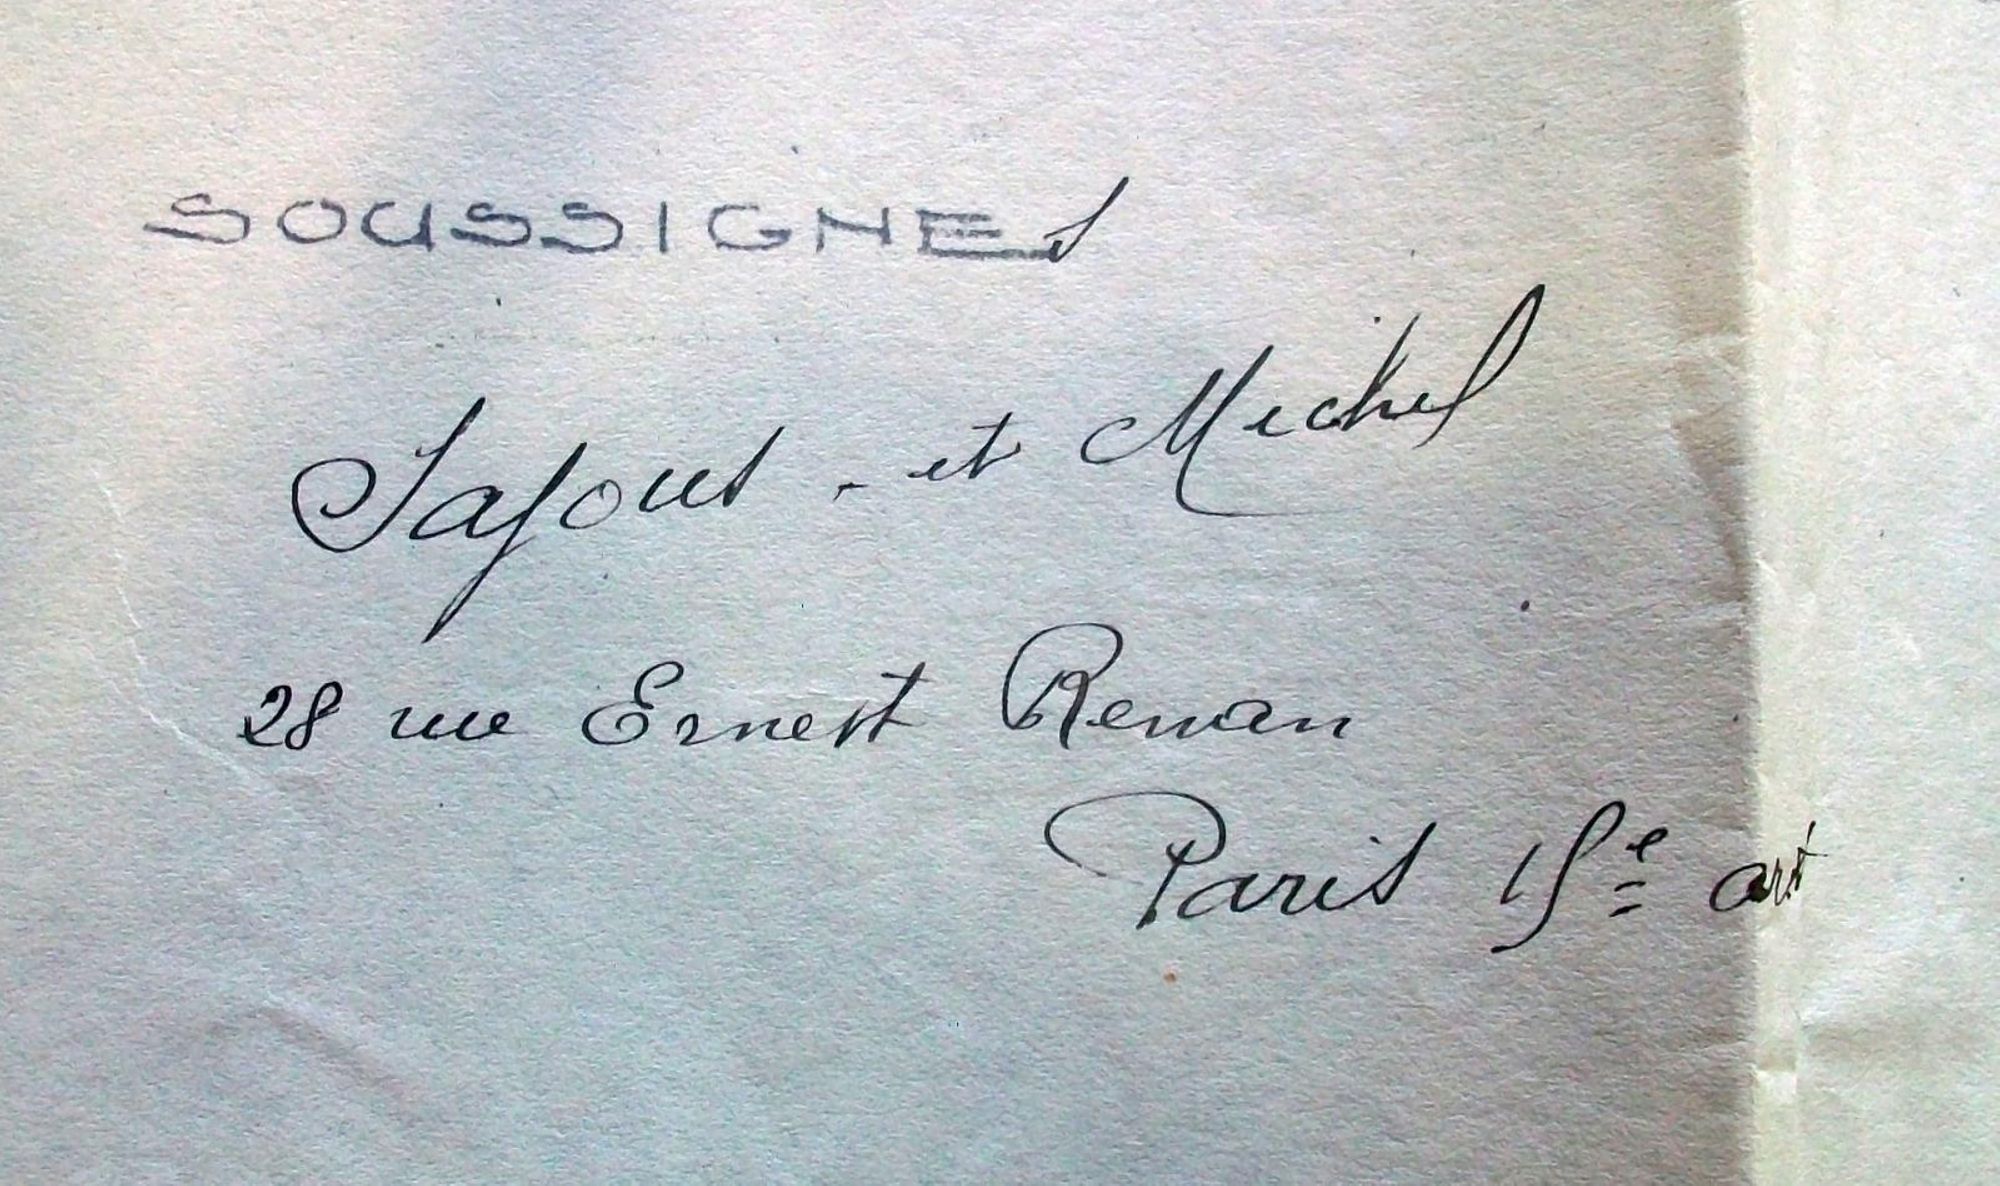 SOUSSIGNEs
Sajous - et Michel
28 rue Ernest Renan
Paris 15e art